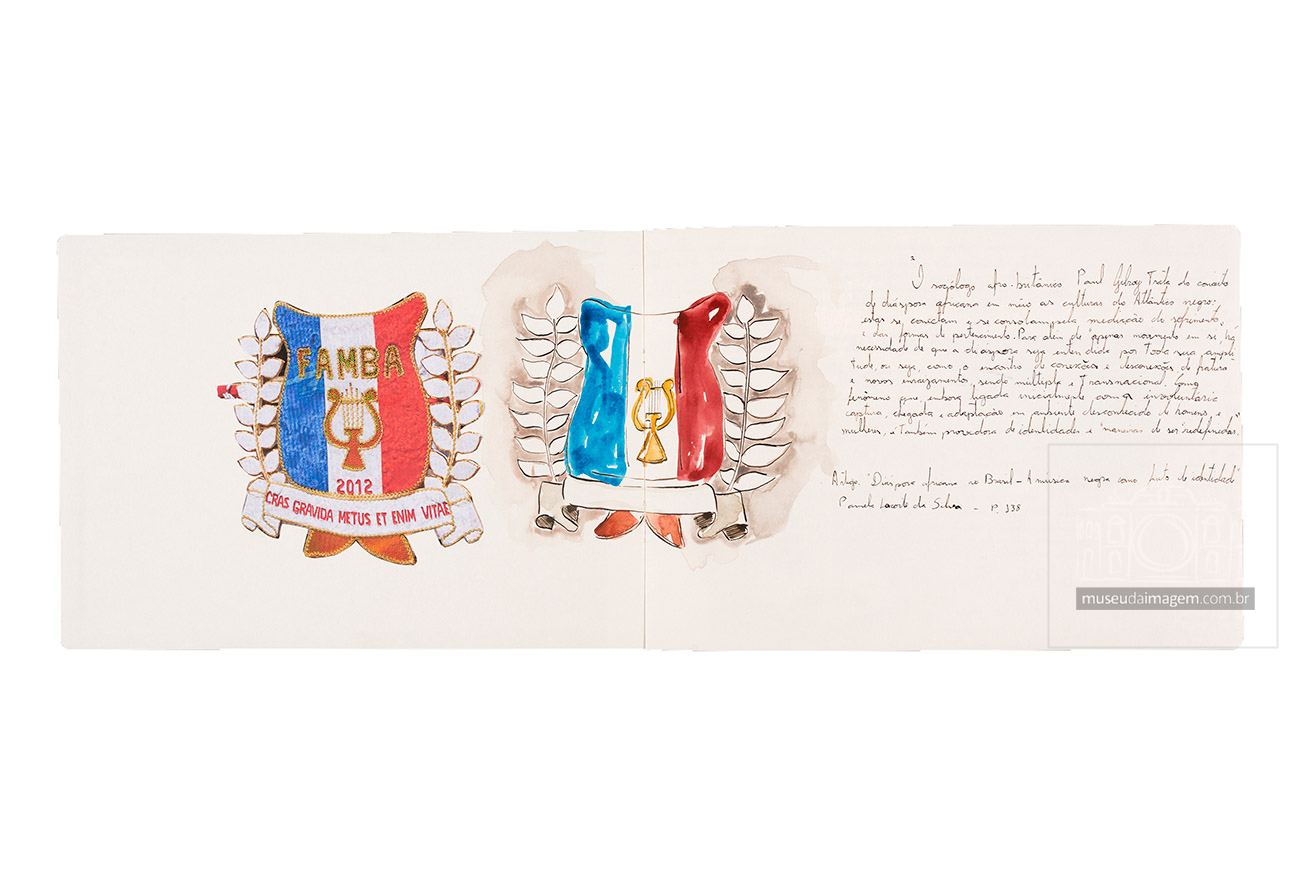 FAMBA
2012
CRAS GRAVIDA METUS ET ENIM VITAE
"O sociólogo afro-britânico Paul Gilroy trata do conceito
de diáspora africana em meio as culturas do Atlântico negro:
estas se conectam e se consolam pela mediação do sofrimento,
e das formas de pertencimento. Para além de "apenas movimento em si, há
necessidade de que a diáspora seja entendida por toda sua ampli
tude, ou seja, como o encontro de conexões e desconexões, de fratura
e novos enraizamento, sendo múltipla e transnacional. Como
fenômeno que, embora ligada inicialmente com a involuntária
captura, chegada e adaptação em ambiente desconhecido de homens, e
mulheres, é também provedora de identidades e "maneiras de ser redefinidas."
Artigo: "Diáspora africana no Brasil - A música negra como luta de identidade"
Pamela da Silva - P. 138
museudaimagem.com.br